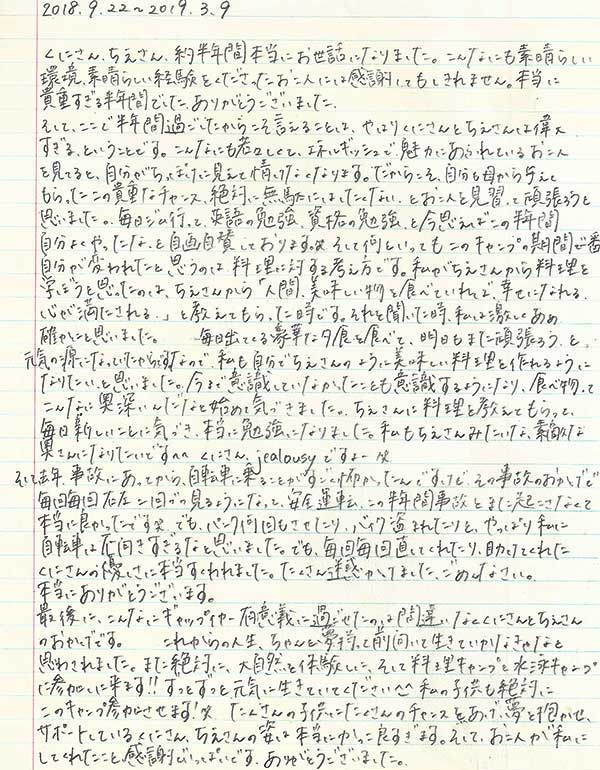 2018.9.22～2019.3.9
くにさん、ちえさん、約半年間本当にお世話になりました。こんなにも素晴らしい
環境、素晴らしい経験をくださったお二人には感謝してもしきれません。本当に
貴重すぎる半年間でした。ありがとうございました。
そして、ここで半年間過ごしたからこそ言えることは、やはりくにさんとちえさんは偉大
すぎる、ということです。こんなにも若々しくて、エネルギッシュで魅力にあふれているお二人
を見てると、自分がちっぽけに見えて情けなくなります。だからこそ、自分も母から与えて
もらったこの貴重なチャンス、絶対に無駄にはしたくない、とお二人を見習って頑張ろうと
思いました。毎日ジム行って、英語の勉強、資格の勉強、と今思えばこの半年間
自分よくやったな、と自画自賛しております。そして何といってもこのキャンプの期間で一番
自分が変われたと思うのは料理に対する考え方です。私がちえさんから料理を
学ぼうと思ったのは、ちえさんから「人間、美味しい物を食べていれば、幸せになれる、
心が満たされる。」と教えてもらった時です。それを聞いた時、私は激しくああ
確かにと思いました。 毎日出てくる豪華な夕食を食べて、明日もまた頑張ろう、と
元気の源になっていたからです。なので、私も自分でちえさんのように美味しい料理を作れるように
なりたい、と思いました。今まで意識していなかったことも意識するようになり、食べ物って
こんなに奥深いんだなと始めて気づきました。ちえさんに料理を教えてもらって、
毎日新しいことに気づき、本当に勉強になりました。私もちえさんみたいな、素敵な
奥さんになりたいです^^ くにさん、jealousyですよー
そして去年、事故にあってから、自転車に乗ることがすごく怖かったんですけど、その事故のおかげで
毎回毎回左右二回ずつ見るようになって、安全運転、この半年間事故とまた起こさなくて
本当に良かったです。でも、パンク何回もさせたり、バイク盗まれたりと、やっぱり私に
自転車は不向きすぎるなと思いました。でも、毎回毎回直してくれたり、助けてくれた
くにさんの優しさに本当すくわれました。たくさん迷惑かけてました、ごめんなさい。
本当にありがとうございます。
最後に、こんなにギャップイヤー有意義に過ごせたのは間違いなくくにさんとちえさん
のおかげです。 これからの人生、ちゃんと夢持って前向いて生きていかなきゃなと
思わされました。また絶対に、大自然を体験しに、そして料理キャンプと水泳キャンプ
に参加しに来ます!! ずっとずっと元気に生きていてください^^ 私の子供も絶対に
このキャンプ参加させます! たくさんの子供にたくさんのチャンスをあげ、夢を抱かせ、
サポートしているくにさん、ちえさんの姿は本当にかっこ良すぎます。そして、お二人が私に
してくれたこと、感謝でいっぱいです。ありがとうございました。